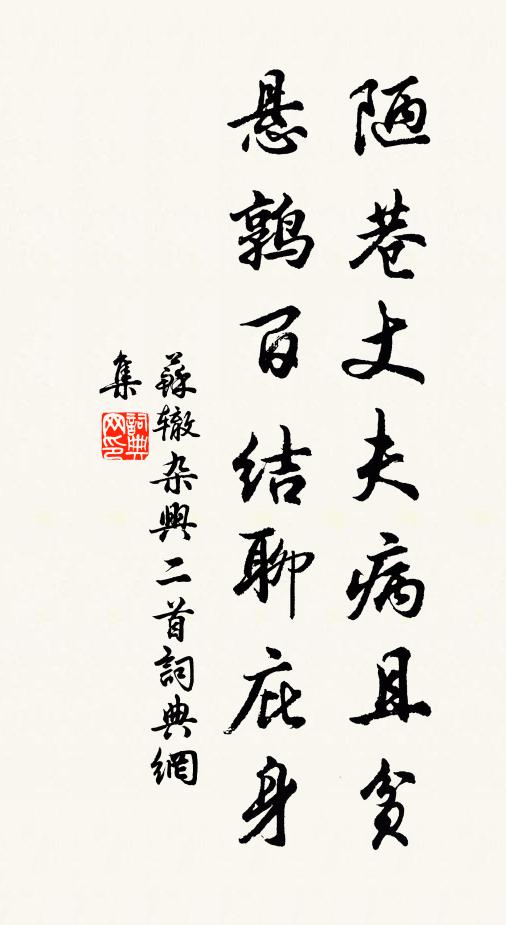 陋巷丈夫病且贫
悬鹑百结聊庇身
蘇辙杂興二首詞典網
集
詞典
网印